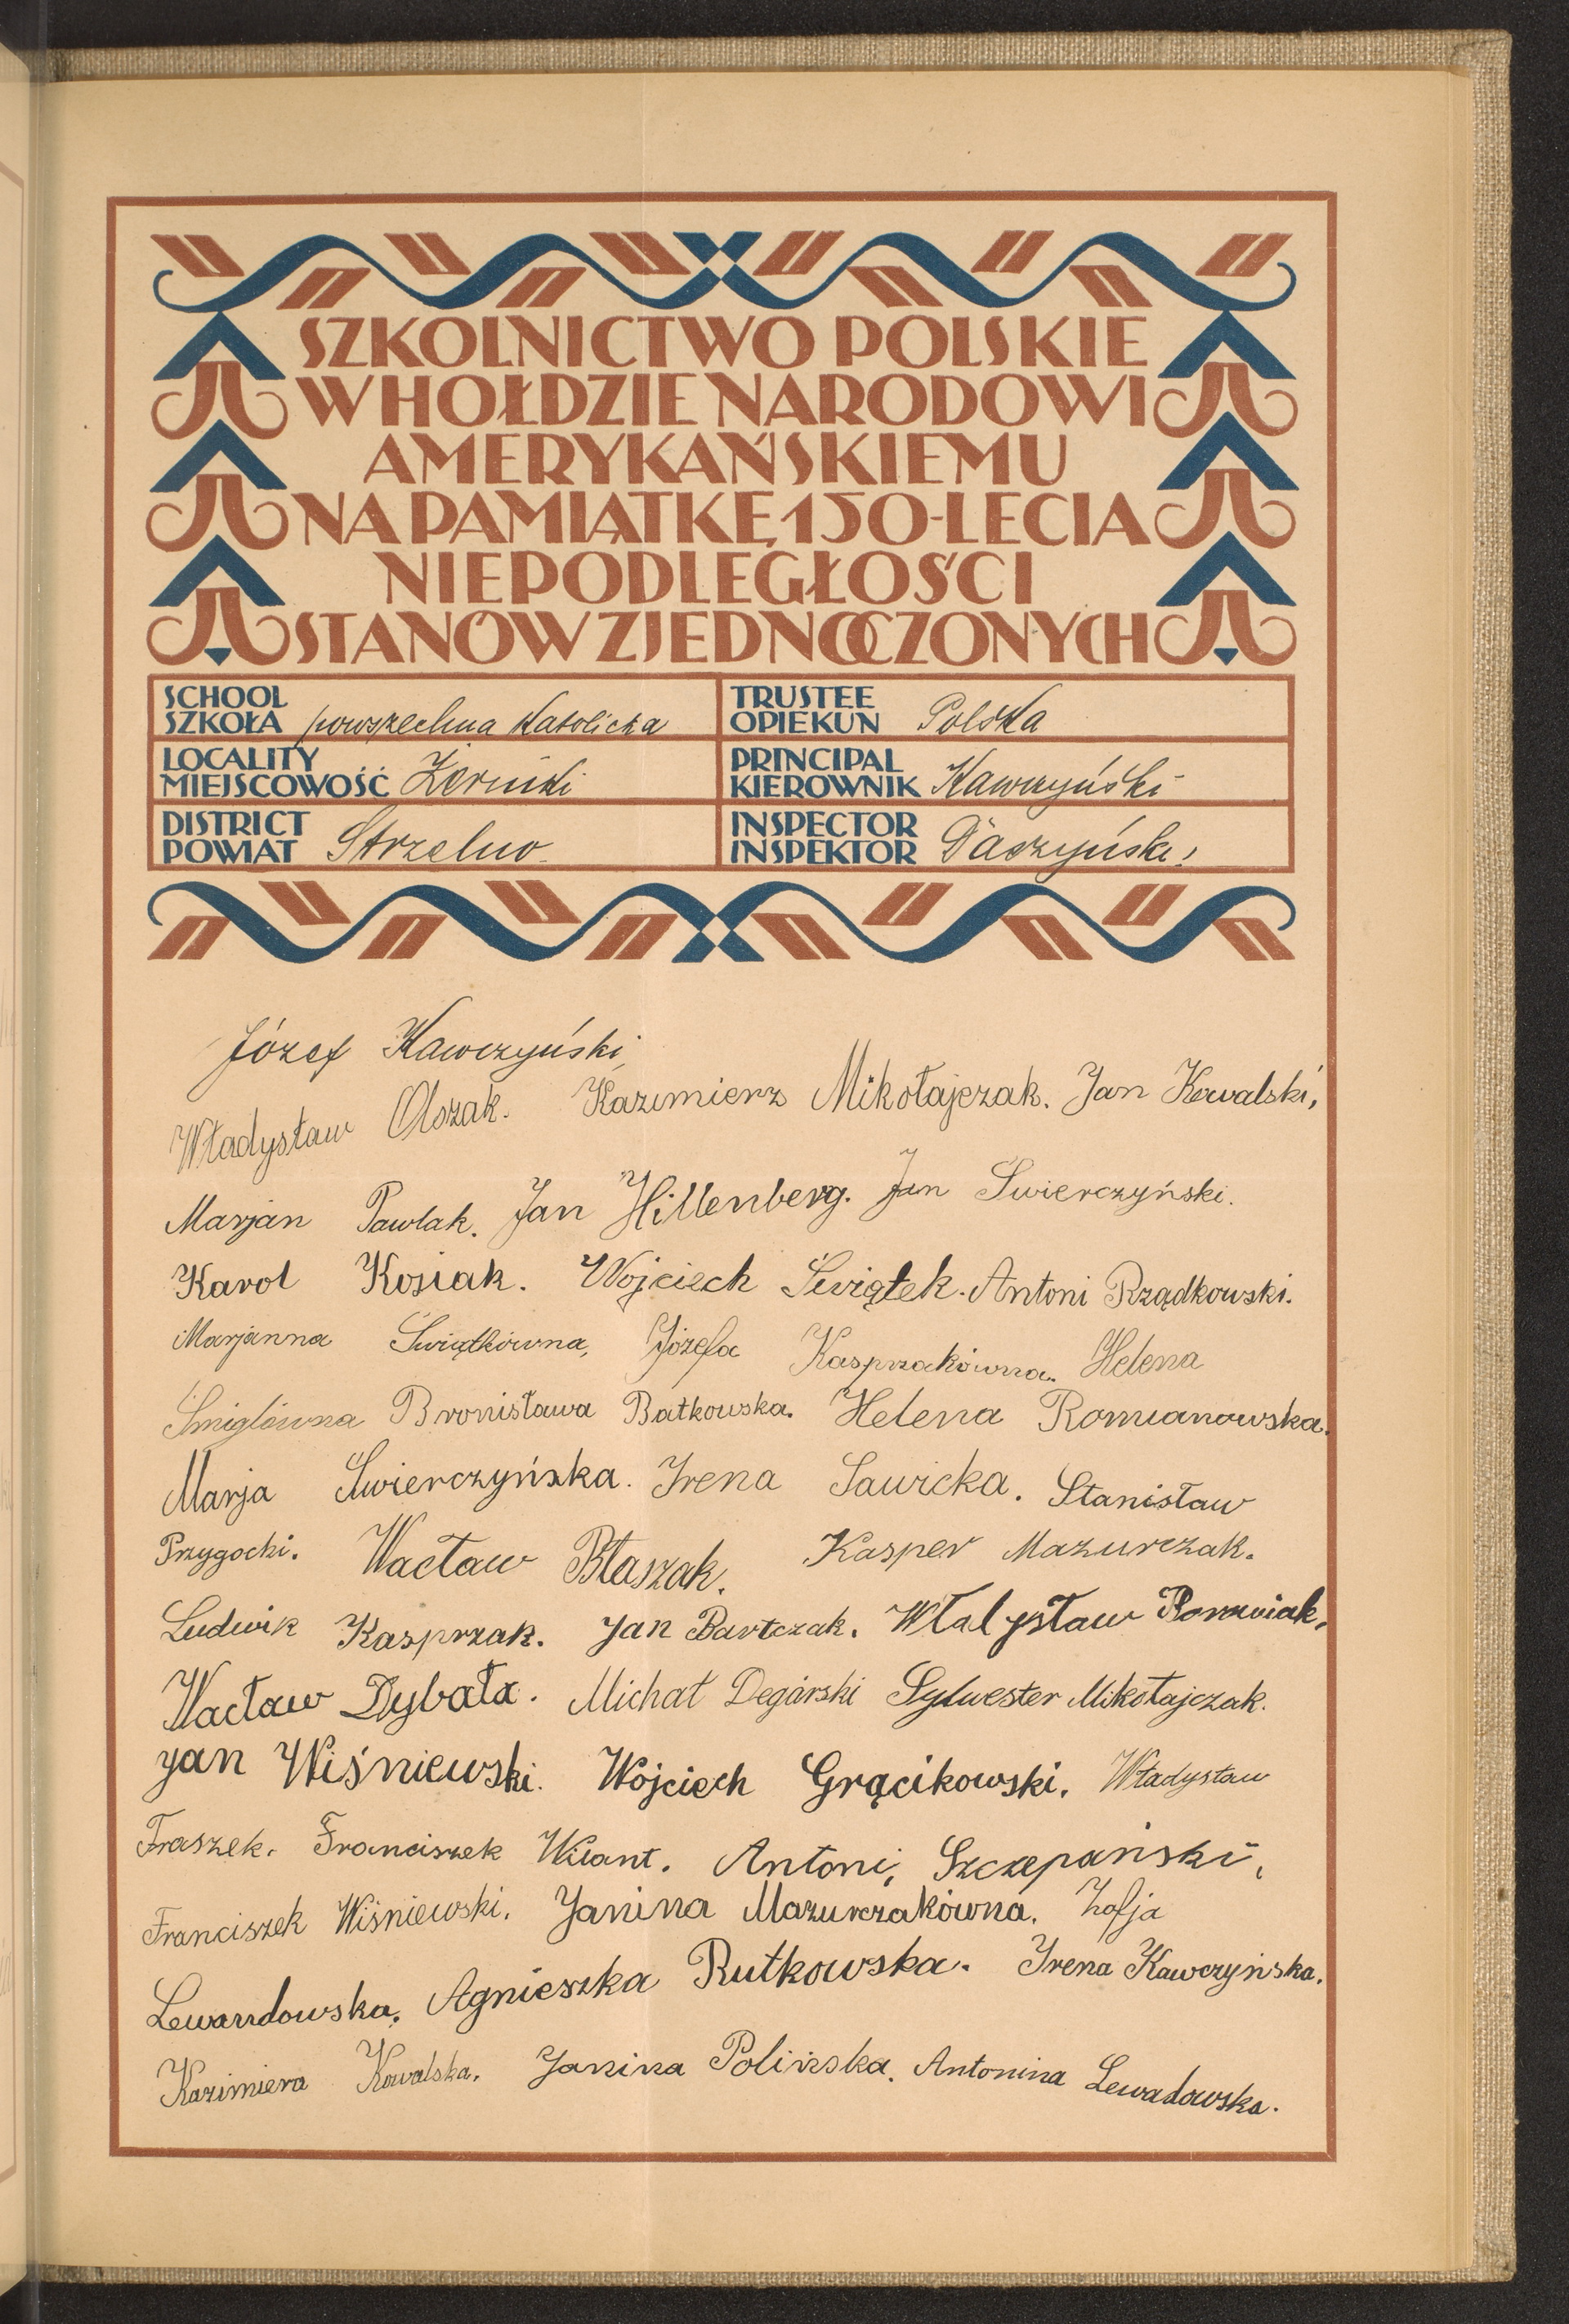 SZKOLNICTWO POLSKIE
W HOŁDZIE NARODOWI
AMERYKAŃSKIEMU
NA PAMIĄTKĘ 150-LECIA
NIEPODLEGŁOŚCI
STANÓW ZJEDNOCZONYCH
SCHOOL
SZKOŁA powszechna Katolicka
TRUSTEE
OPIEKUN Polska
LOCALITY
MIEJSCOWOŚĆ Żerniki
PRINCIPAL
KIEROWNIK Kawczyński
DISTRICT
POWIAT Strzelno
INSPECTOR
INSPEKTOR
Józef Kawczyński,
Władysław Olszak. Kazimierz Mikołajczak. Jan Kowalski,
Marjan Pawlak. Jan Hillenberg. Jan Swierczyński.
Karol Kosiak. Wojciech Świątek. Antoni Rządkowski.
Marjanna Świątkówna, Józefa Kasprzakówna. Helena
Śmiglówna Bronisława Batkowska. Helena Romianowska.
Marja Swierczyńska. Irena Sawicka. Stanisław
Przygocki. Wacław Błaszak. Kasper Mazurczak.
Ludwik Kasprzak. Jan Bartczak.
Wacław Dybała. Michał Degórski Sylwester Mikołajczak.
Jan Wiśniewski. Wojciech Grącikowski. Władysław
Fraszek. Franciszek Antoni, Szczepański,
Franciszek Wiśniewski. Janina Mazurczakówna. Zofja
Lewandowska. Agnieszka Rutkowska. Irena Kawczyńska.
Kazimiera Kowalska. Janina Polińska. Antonina Lewadowska.